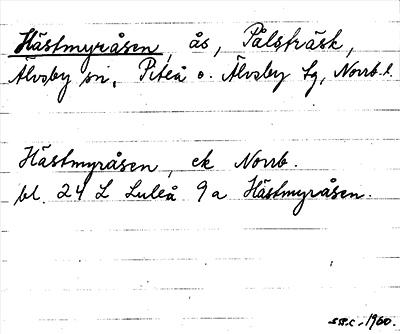 Hästmyråsen, ås, Pålsträsk,
Älvsby sn, Piteå o. Älvsby tg, Norrb.l.
Hästmyråsen, ek Norrb.
bl. 24 L Luleå 9a Hästmyråsen.
1960.